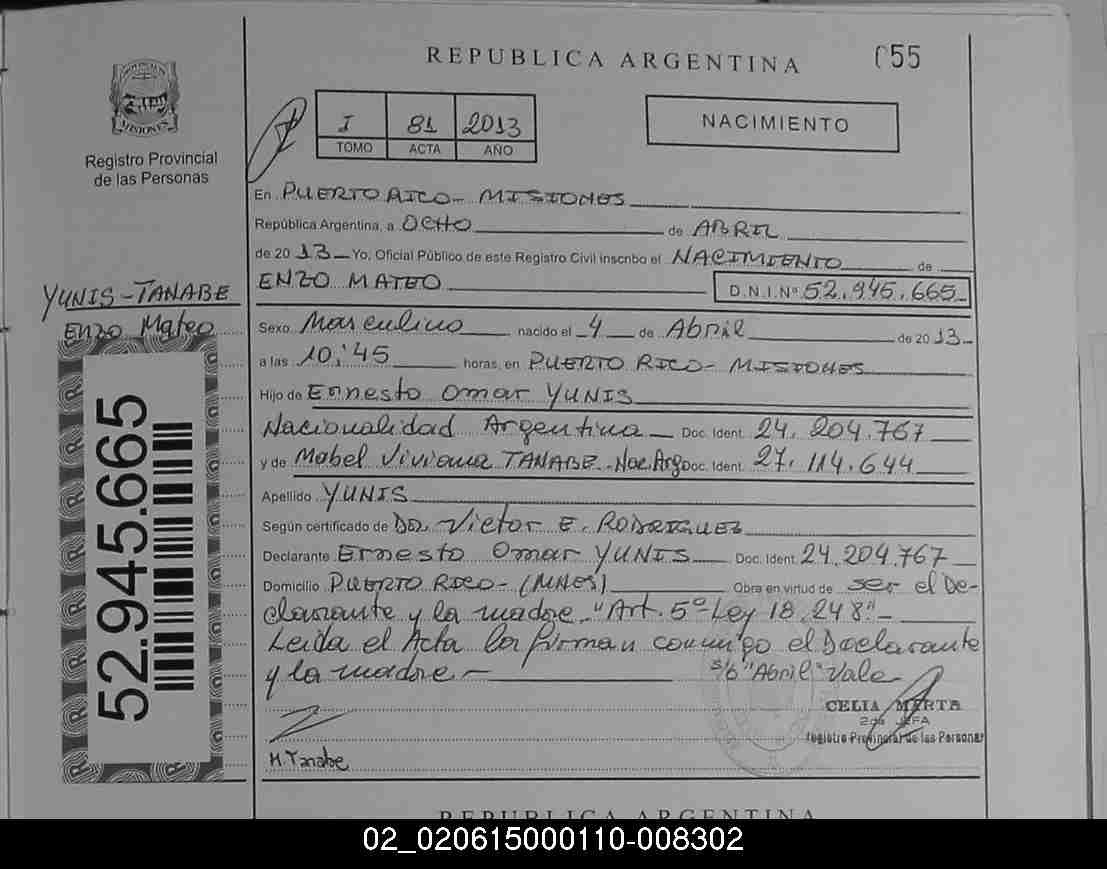 REPUBLICA ARGENTINA
055
PROVINCIA DE MISIONES
Registro Provincial
de las Personas
I 81 2013
TOMO ACTA AÑO
NACIMIENTO
En PUERTO RICO - MISIONES
República Argentina, a OCHO de ABRIL
de 2013 Yo, Oficial Público de este Registro Civil inscribo el NACIMIENTO de
ENZO MATEO D.N.I.Nº 52.945.665
YUNIS-TANABE
Enzo Mateo
Sexo Masculino nacido el 4 de Abril de 2013
a las 10:45 horas, en PUERTO RICO - MISIONES
Hijo de Ernesto Omar YUNIS
Nacionalidad Argentina Doc. Ident. 24.204.767
y de Mabel Viviana TANABE - Nac. Arg. Doc. Ident. 27.114.644
Apellido YUNIS
Según certificado de Dr. Victor E. RODRIGUEZ
Declarante Ernesto Omar YUNIS Doc. Ident. 24.204.767
Domicilio PUERTO RICO - (MNES) Obra en virtud de ser el De-
clarante y la madre. "Art. 5º Ley 18.248" -
Leida el Acta la firman conmigo el Declarante
y la madre - s/b "Abril" Vale
CELIA MERTA
2da JEFA
Registro Provincial de las Personas
M. Tanabe
52.945.665
REPUBLICA ARGENTINA
02_020615000110-008302